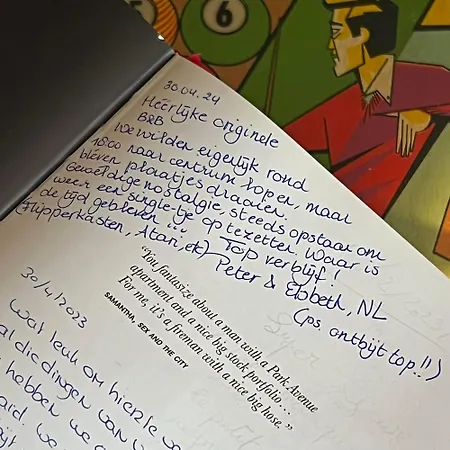 30.04.24
Heerlijke originele
B&B
We wilden eigenlijk rond
18:00 naar centrum lopen, maar
bleven plaatjes draaien.
Geweldige nostalgie, steeds opstaan om
weer een singletje op te zetten. Waar is
de tijd gebleven !!!
(Flipperkasten, Atari, etc) Top verblijf!
Peter & Elbeth, NL
(ps. ontbijt top!!)
"You fantasize about a man with a Park Avenue
apartment and a nice big stock portfolio...
For me, it's a fireman with a nice big hose."
SAMANTHA, SEX AND THE CITY
30/4/2023
Wat leuk om hier
al die dingen van
hebben we